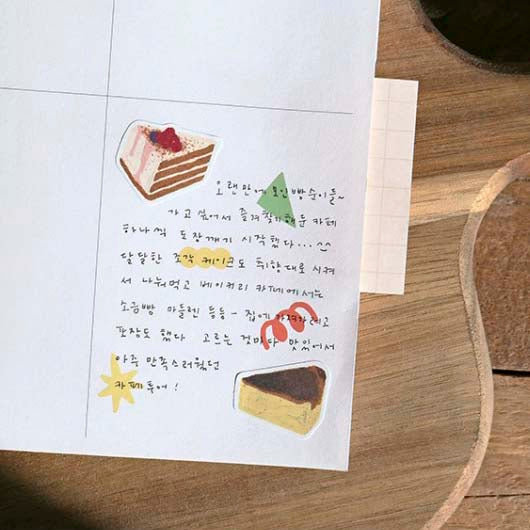 오랜만에 모인 빵순이들~
가고 싶어서 즐겨찾기해둔 카페
하나씩 도장깨기 시작했다... ^^
달달한 조각 케이크도 취향대로 시켜
서 나눠먹고 베이커리 카페에서는
소금빵 마들렌 등등 - 집에 가져가려고
포장도 했다 고르는 것마다 맛있어서
아주 만족스러웠던
카페투어!